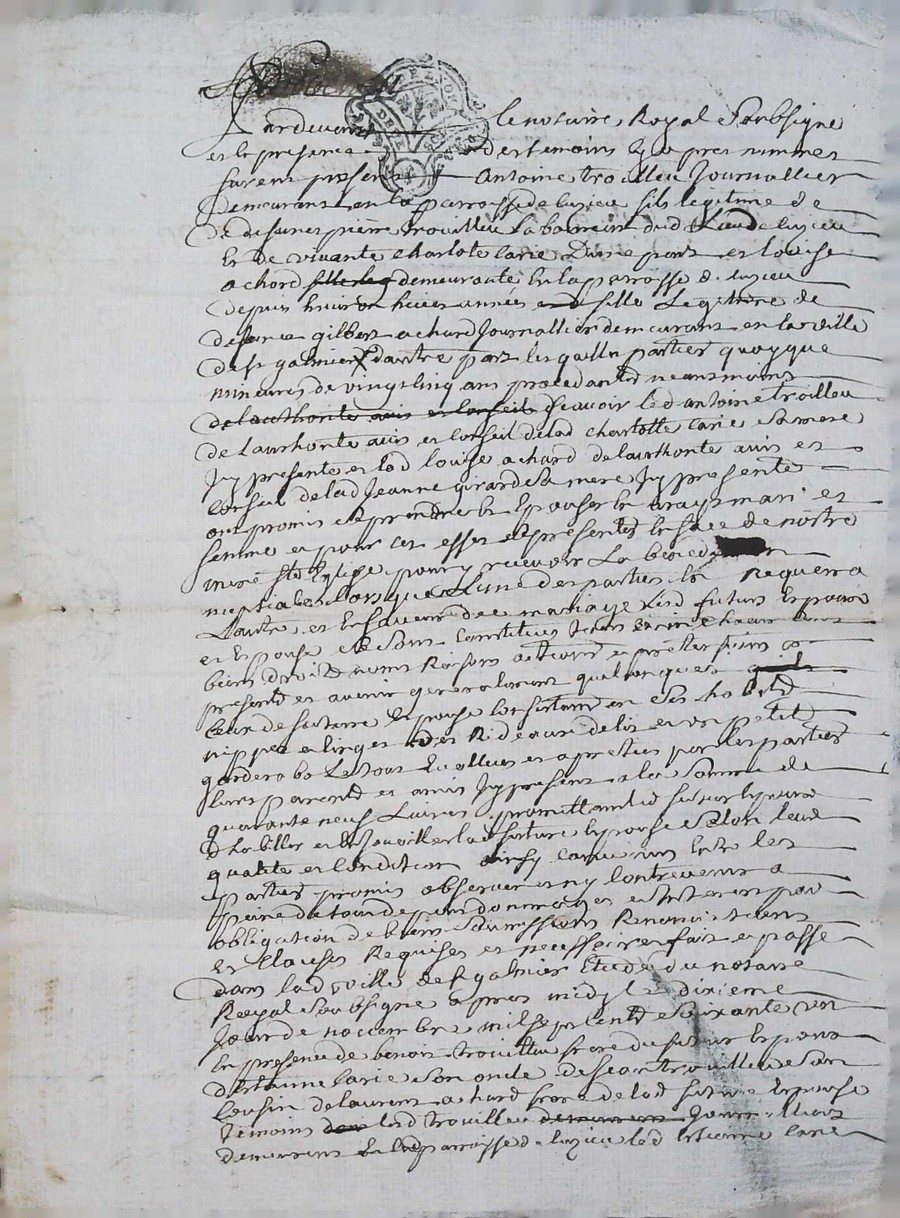 Pardevant le notaire Royal Soubsigne
et le presence des temoins cy apres nommes
furent presens Antoine trouilleu Journallier
demeurant en la parroisse de luzieu fils legitime de
de defunt pierre trouilleu laboureur dud lieu de luzieu
et de vivante charlote larie Dune part et louise
achard fille leg demeurante en la parroisse d luzieu
depuis huit ou années fille Legitime de
defunct gilbert achard Journallier demeurant en la ville
de st galmier dautre part lesquelles parties quoyque
mineures de vingt cinq ans procedantes neansmoins
de lauthorite avis et conseil scavoir led antoine trouilleu
de lauthorite avis et conseil de lad charlotte larie sa mere
Jcy presente et lad louise achard de lauthorite avis et
conseil de lad Jeanne girard sa mere Jcy presente
ont promis se prendre et Epouser en vrays mari et
femme et pour cet effet se presenter en face de nostre
mere ste Eglise pour y recevoir La bened
nuptialle lors que Lune des parties en Requerra
Lautre, et en faveur de mariage lesd futurs Epoux
et Epouse se sont constitues tous et un chacun leurs
biens droits noms Raisons actions et pretentions
presents et avenir generalement quelconques
ceux de future Epouse consistant en ses habits
nippes et linges des Rideaux de lit et un petit
garderobe Le tout Evallues et apreties par les parties
leurs parents et amis Jcy presents a la Somme de
quarante neuf Livres promettant led futur Epoux
d habiller et la future Epouse Selon leur
qualite et condition ainsy convenu entre les
parties promis observer et ny contrevenir a
peine de tous depens dommages et interets par
obligation de biens Soumissions Renonciations
et Clauses Requises et necessaires fait et passe
dans lad ville de st galmier Etude du notaire
Royal Soubsigne apres midy le dixieme
Jour de novembre mil sept cents soixante un
en presence de benoit trouilleu frere du futur Epoux
d'Estienne larie son oncle de Jean trouilleu Son
Cousin de laurent achard frere de lad future Epouse
temoins led trouilleu demeurant Journalliers
demeurant en lad parroisse d luzieu led Estienne larie